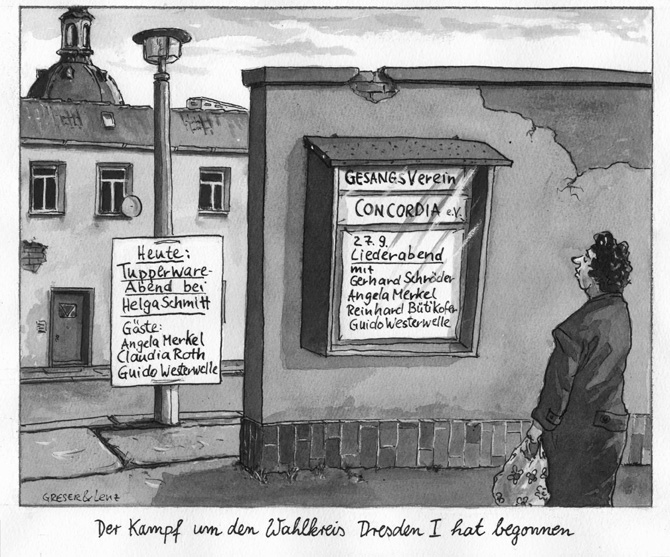 Heute:
Tupperware-
Abend bei
Helga Schmitt
Gäste:
Angela Merkel
Claudia Roth
Guido Westerwelle
GESANGsVerein
CONCORDIA e.V.
27.9.
Liederabend
mit
Gerhard Schröder
Angela Merkel
Reinhard Bütikofer
Guido Westerwelle
GRESER & Lenz
Der Kampf um den Wahlkreis Dresden I hat begonnen